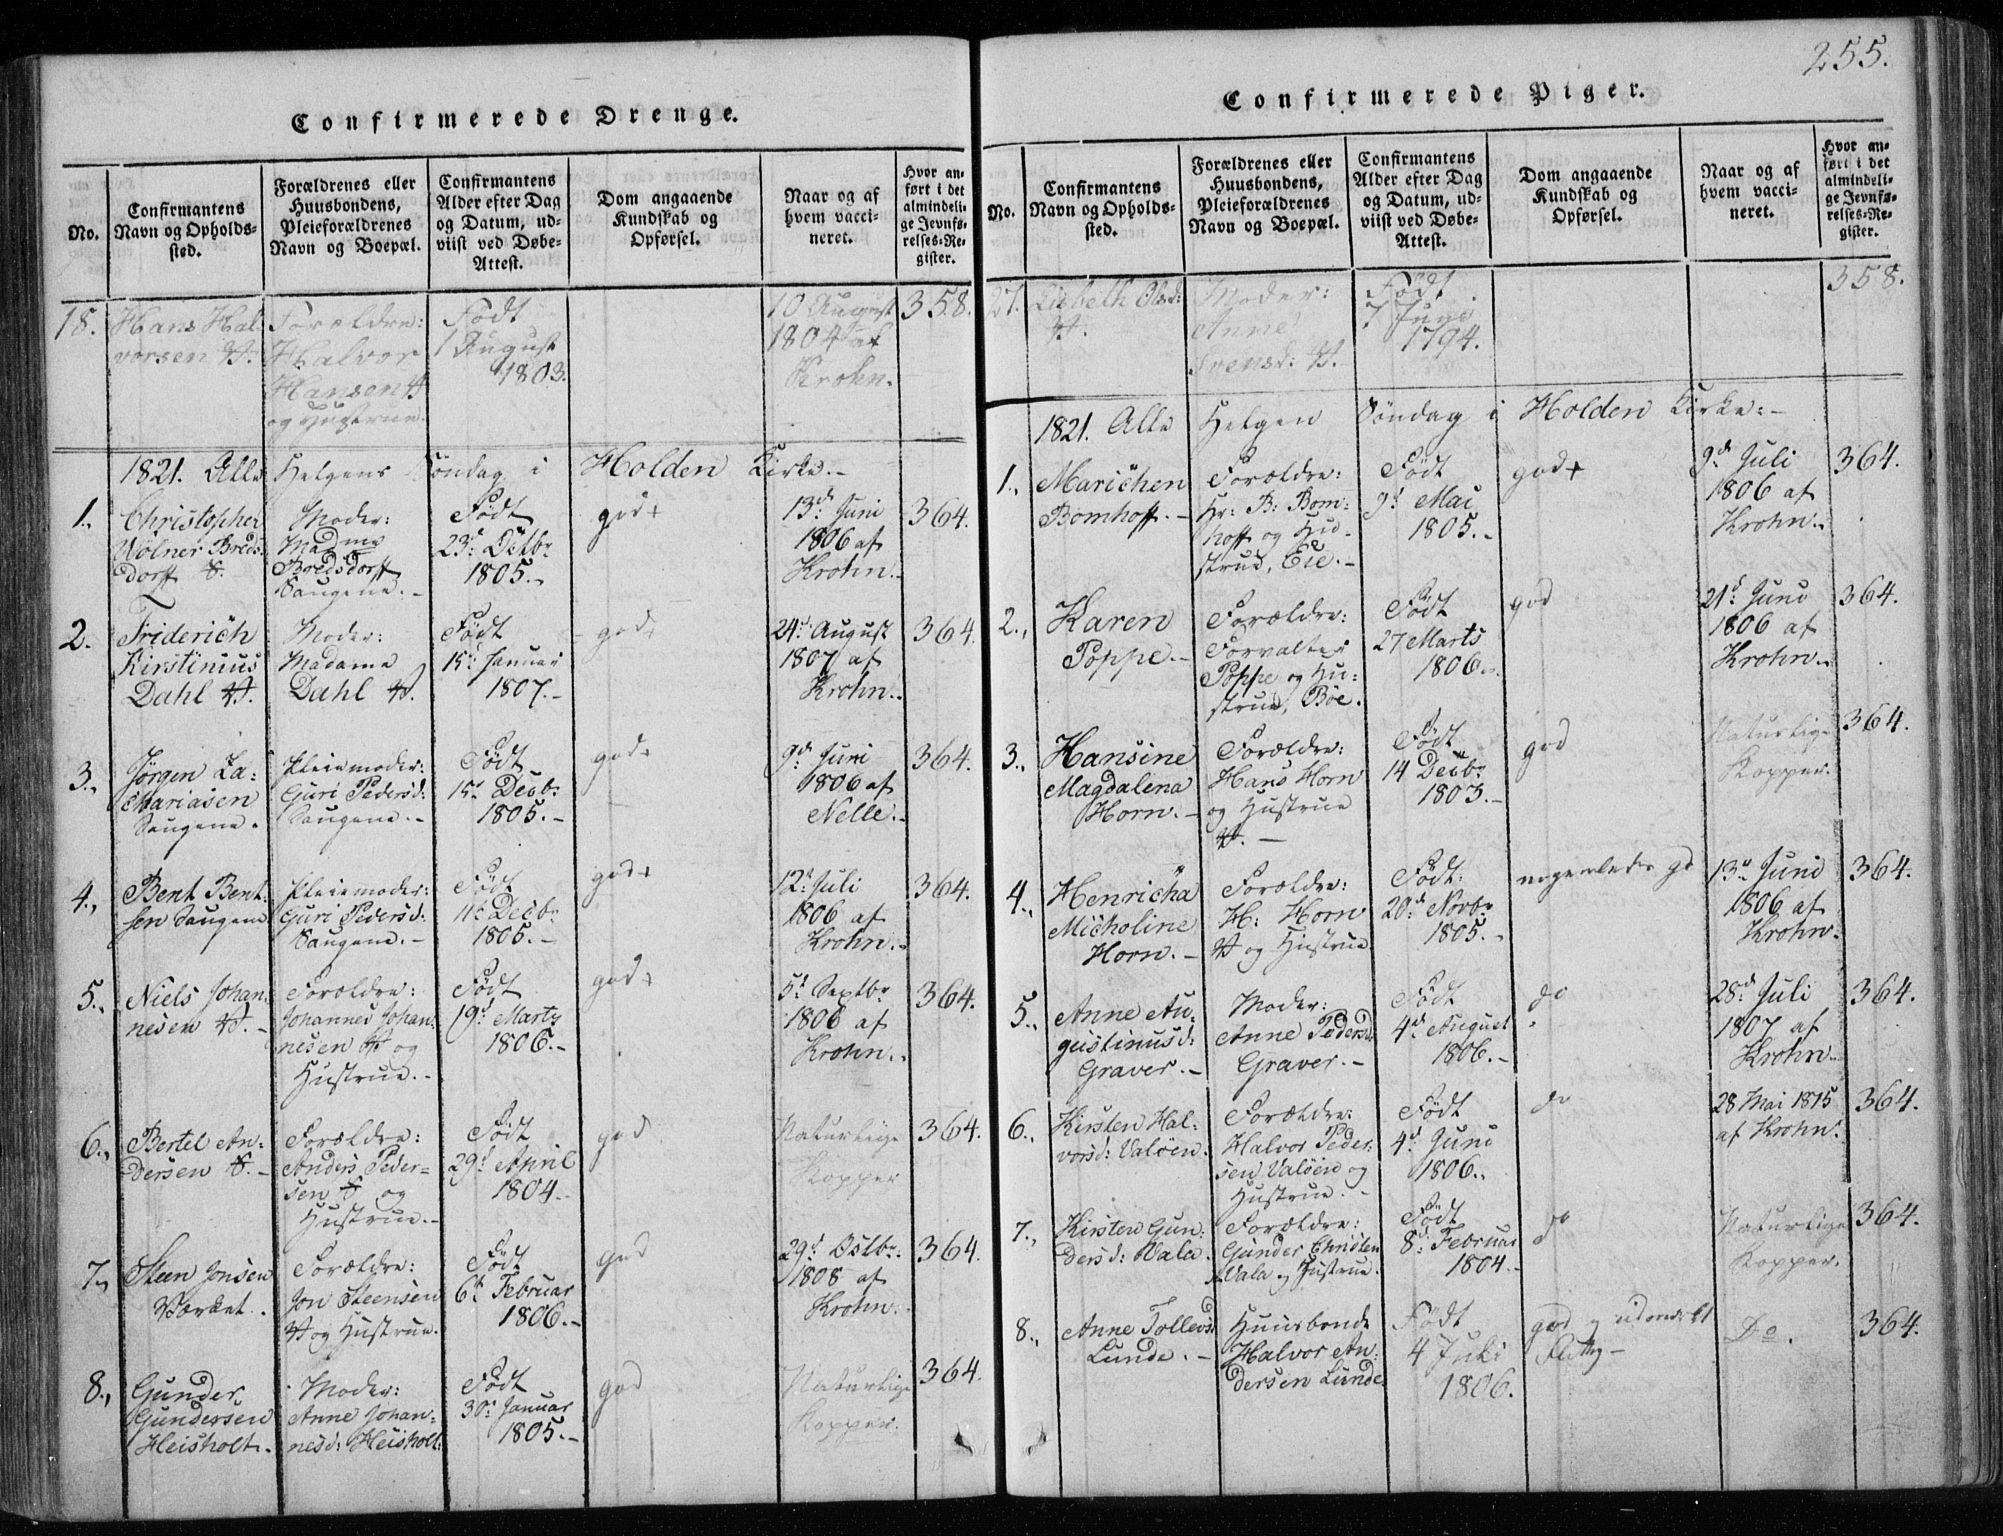 255.
Confirmerede Drenge.
No.
Confirmantens
Navn og Opholds-
sted.
Forældrenes eller
Huusbondens,
Pleieforældrenes
Navn og Boepæl.
Confirmantens
Alder efter Dag
og Datum, ud-
viist ved Døbe-
Attest.
Dom angaaende
Kundskab og
Opførsel.
Naar og af
hvem vacci-
neret.
Hvor an-
ført i det
almindeli-
ge Jevnfø-
relses-Re-
gister.
18.
Hans Hal-
vorsen V.
Forældre:
Halvor
Hansen V
og Hustrue.
Født
1 August
1803.
10 August
1804 af
Krohn.
358.
1821. Alle Helgens Søndag i Holden Kirke.-
1.,
Christopher
Wölner Breds-
dorff S.
Moder:
Madme
Bredsdorff
Saugene.-
Født
23d: Octbr
1805.-
god+
13d: Juni
1806 af
Krohn.-
364.
2.
Friderich
Kirstinius
Dahl V.
Moder:
Madame
Dahl V.
Født
15d: Januar
1807.-
god+
24d: August
1807 af
Krohn.-
364.
3.,
Jörgen Za-
chariasen
Saugene.
Pleiemoder:
Guri Pedersd:
Saugene.-
Født
15d Decbr
1805.-
god+
9d: Juni
1806 af
Nelle.-
364.
4.,
Bent Bent-
sen Saugene
Pleiemoder:
Guri Pedersd:
Saugene.-
Født
11d: Decbr
1805.-
god+
12d: Juli
1806 af
Krohn.-
364.
5.,
Niels Johan-
nesen V.-
Forældre:
Johannes Johan-
nesen V og
Hustrue.-
Født
19d Marts
1806.-
god+
5d: Septbr
1806 af
Krohn.-
364.
6.,
Bertel An-
dersen S.-
Forældre:
Anders Peder-
sen S og
Hustrue.-
Født
29d April
1804.-
god
Naturlige
Kopper
364.
7.,
Steen Jonsen
Værket.
Forældre:
Jon Steensen
V og Hustrue.
Født
6d: Februar
1806.-
god
29d Octbr.
1808 af
Krohn.
364.
8.,
Gunder
Gundersen
Heisholt.
Moder:
Anne Johan-
nesd: Heisholt.
Født
30d: Januar
1805.-
god
Naturlige
Kopper.
364.
Confirmerede Piger.
No.
Confirmantens
Navn og Opholds-
sted.
Forældrenes eller
Huusbondens,
Pleieforældrenes
Navn og Boepæl.
Confirmantens
Alder efter Dag
og Datum, ud-
viist ved Døbe-
Attest.
Dom angaaende
Kundskab og
Opførsel.
Naar og af
hvem vacci-
neret.
Hvor an-
ført i det
almindeli-
ge Jevnfø-
relses-Re-
gister.
27.
Lisbeth Olsd:
V.
Moder:
Anne
Svensd: V.
Født
7 Juni
1794.
358.
1821. Alle Helgen Söndag i Holden Kirke:-
1.,
Marichen
Bomhoff.-
Forældre:
Hr: B: Bom-
hoff og Hu-
strue, Eie.-
Født
9d Mai
1805.-
god+
9d Juli
1806 af
Krohn.-
364.
2.,
Karen
Poppe.-
Forældre:
Forvalter
Poppe og Hu-
strue, Böe.
Født
27 Marts
1806.-
god
21d: Juni
1806 af
Krohn.-
364.
3.,
Hansine
Magdalena
Horn.-
Forældre:
Hans Horn
og Hustrue
V.-
Født
14 Decbr
1803.-
god
Naturlige
Kopper.
364.
4.,
Henricha
Micholine
Horn.-
Forældre:
H: Horn
V og Hustrue
Født:
20d: Novbr
1805.-
nogenledes gd
13d Juni
1806 af
Krohn.
364.
5.,
Anne Au-
gustinusd:
Graver.-
Moder:
Anne Pedersd:
Graver.-
Født
4d August
1806.-
do
28d: Juli
1807 af
Krohn.-
364.
6.,
Kirsten Hal-
vorsd: Valöen.
Forældre:
Halvor Peder-
sen Valöen og
Hustrue.-
Født
4d Juni
1806.-
do
28 Mai 1815
af Krohn.
364.
7.,
Kirsten Gun-
dersd: Vala.
Forældre:
Gunder Christen
Vala og Hustrue.
Født
8d: Februar
1804.-
do
Naturlige
Kopper.
364.
8.,
Anne Tollevsd
Lunde.-
Huusbonde
Halvor An-
dersen Lunde
Født
4 Juli
1806.
god og udmærkt
Flittig-
Do.
364.